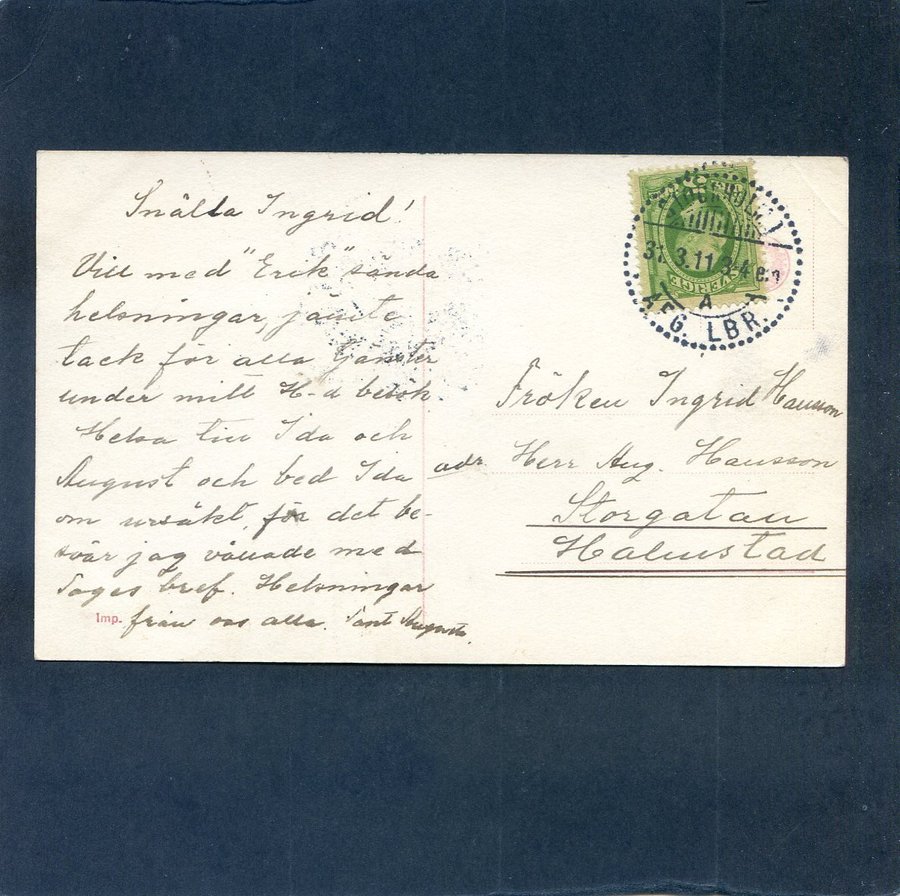 Snälla Ingrid!
Vill med "Erik" sända
helsningar, jämte
tack för alla tjänster
under mitt H-d besök.
Helsa till Ida och
August och bed Ida
om ursäkt, för det be-
svär jag vållade med
Tages bref. Helsningar
Imp. från oss alla. Tant Augusta.
SVERIGE
31.3.11 3-4 e.m
A
AFG. LBR.
Fröken Ingrid Hansson
adr. Herr Aug. Hansson
Storgatan
Halmstad